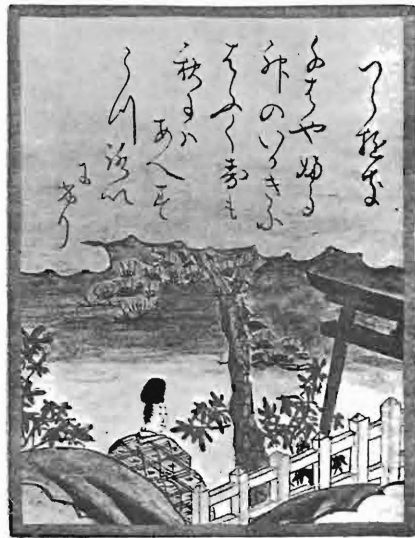 つらゆき
ちはやふる
神のいかきに
はふくすも
秋には
あへす
うつろひ
にけり